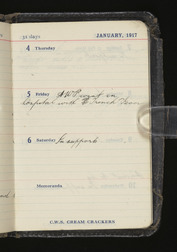 31 days JANUARY, 1917
4 Thursday
5 Friday
hospital with French
6 Saturday In support
Memoranda
C.W.S. CREAM CRACKERS